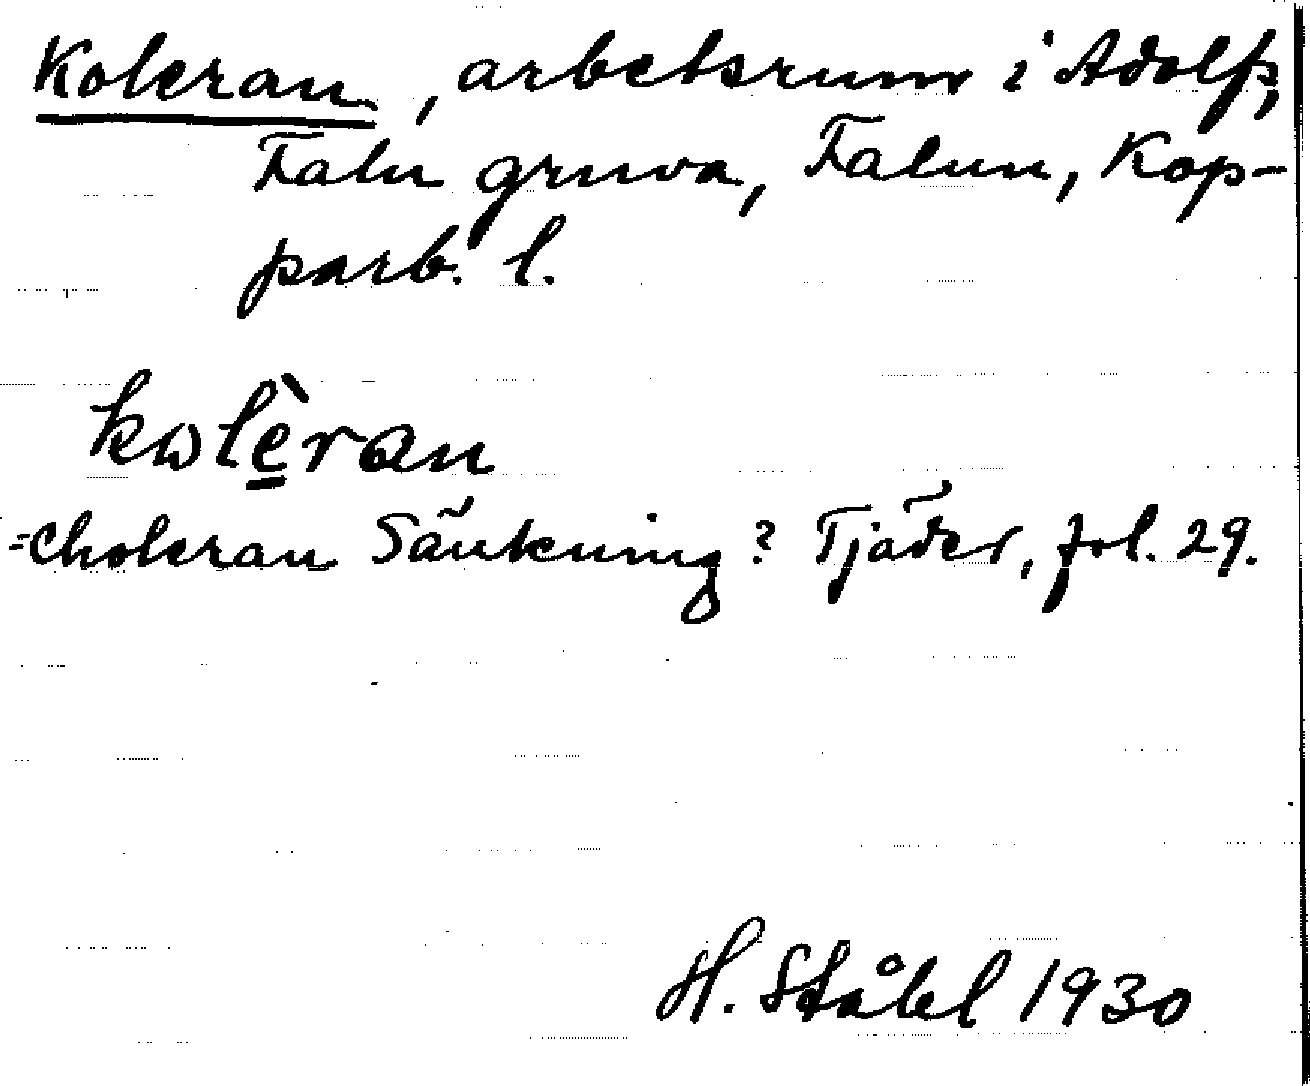 Koleran, arbetsrum i Adolfs,
Falu gruva, Falun, Kop-
parb. l.
kωlèran
=Choleran Sänkning? Tjäder, fol. 29.
H. Ståhl 1930